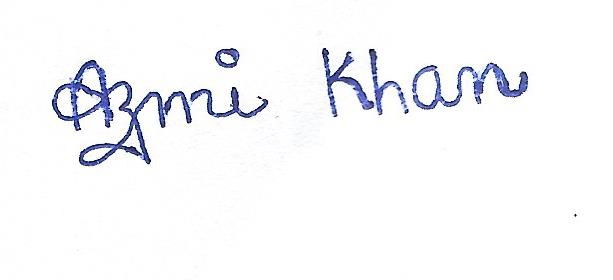 Azmi Khan